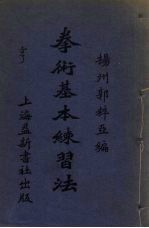 楊州郭粹亞編
拳術基本練習法
全
上海益新書社出版